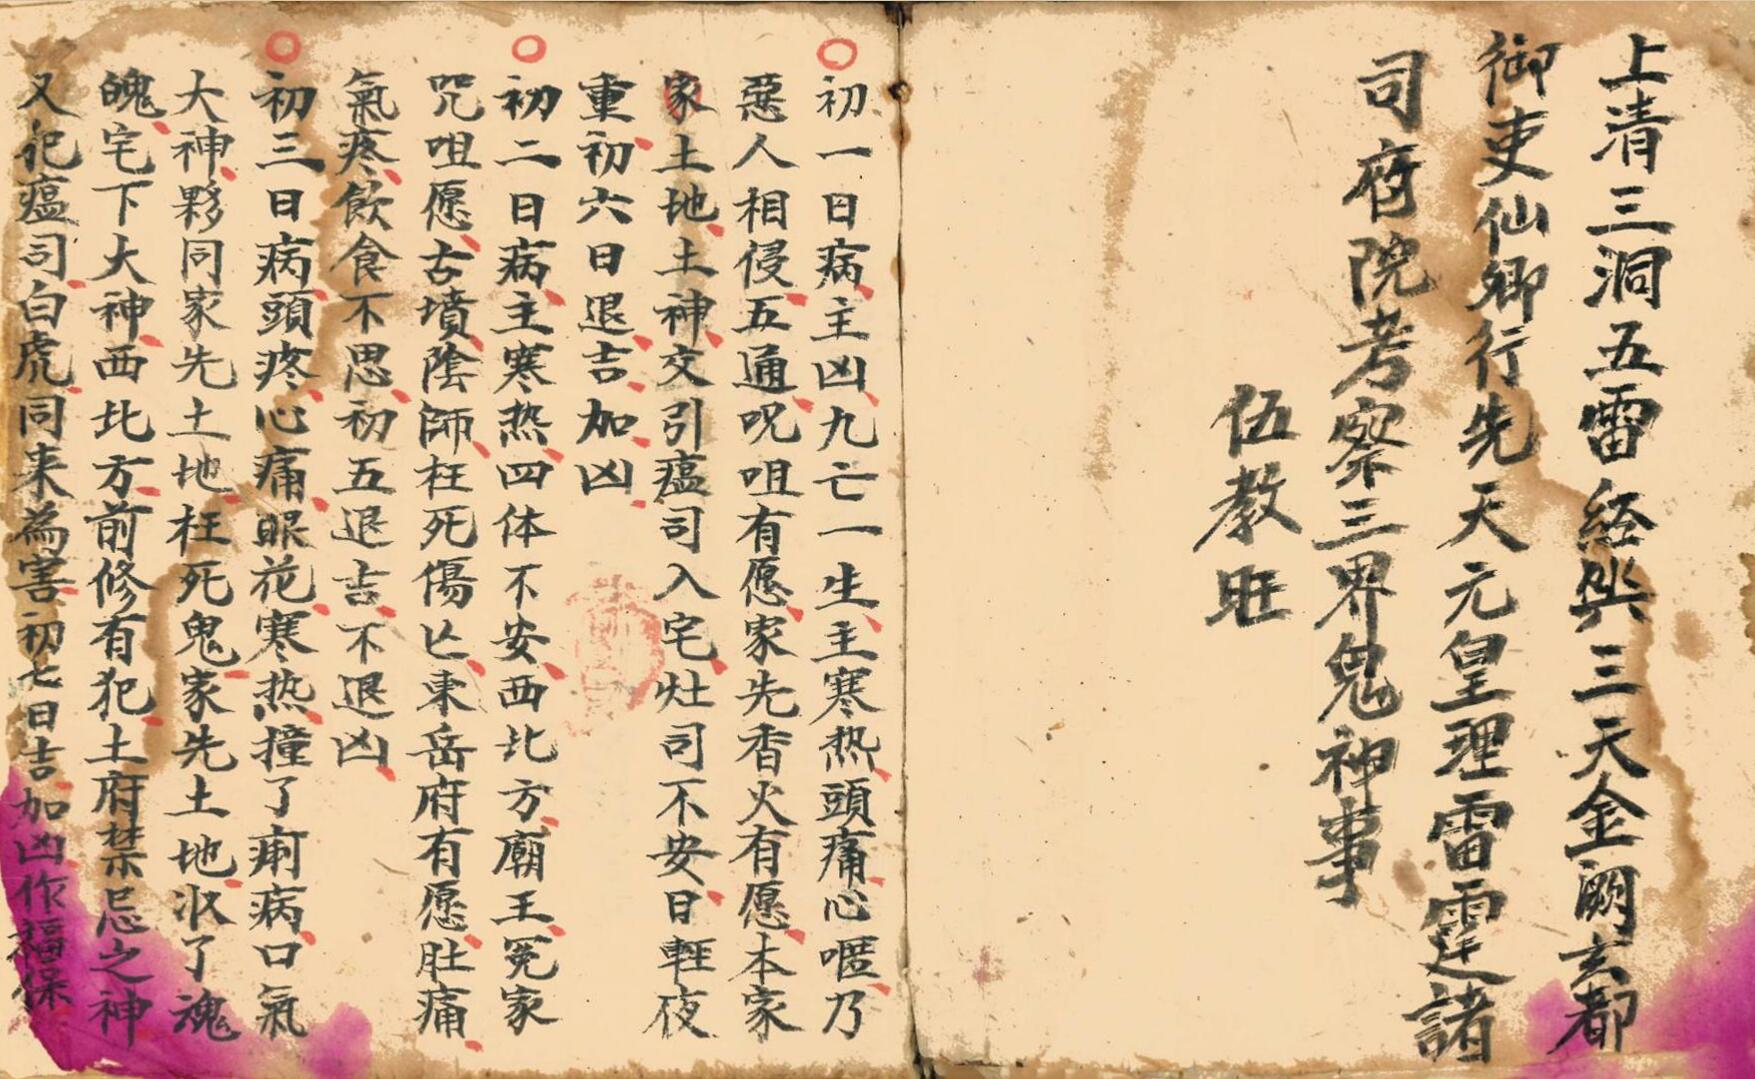 上清三洞五雷經籙三天金闕玄都
御吏仙卿行先天元皇理雷霆諸
司府院考察三界鬼神事
伍教旺
初一日病主凶九亡一生主寒热頭痛心嘔乃
惡人相侵五通呪咀有愿家先香火有愿本家
家土地土神交引瘟司入宅灶司不安日輕夜
重初六日退吉加凶
初二日病主寒热四体不安西北方廟王冤家
咒咀愿古墳陰師枉死傷亡東岳府有愿肚痛
氣疼飲食不思初五退吉不退凶
初三日病頭疼心痛眼花寒热撞了痢病口氣
大神夥同家先土地枉死鬼家先土地收了魂
魄宅下大神西北方前修有犯土府禁忌之神
又犯瘟司白虎同来為害初七日吉加凶作福保